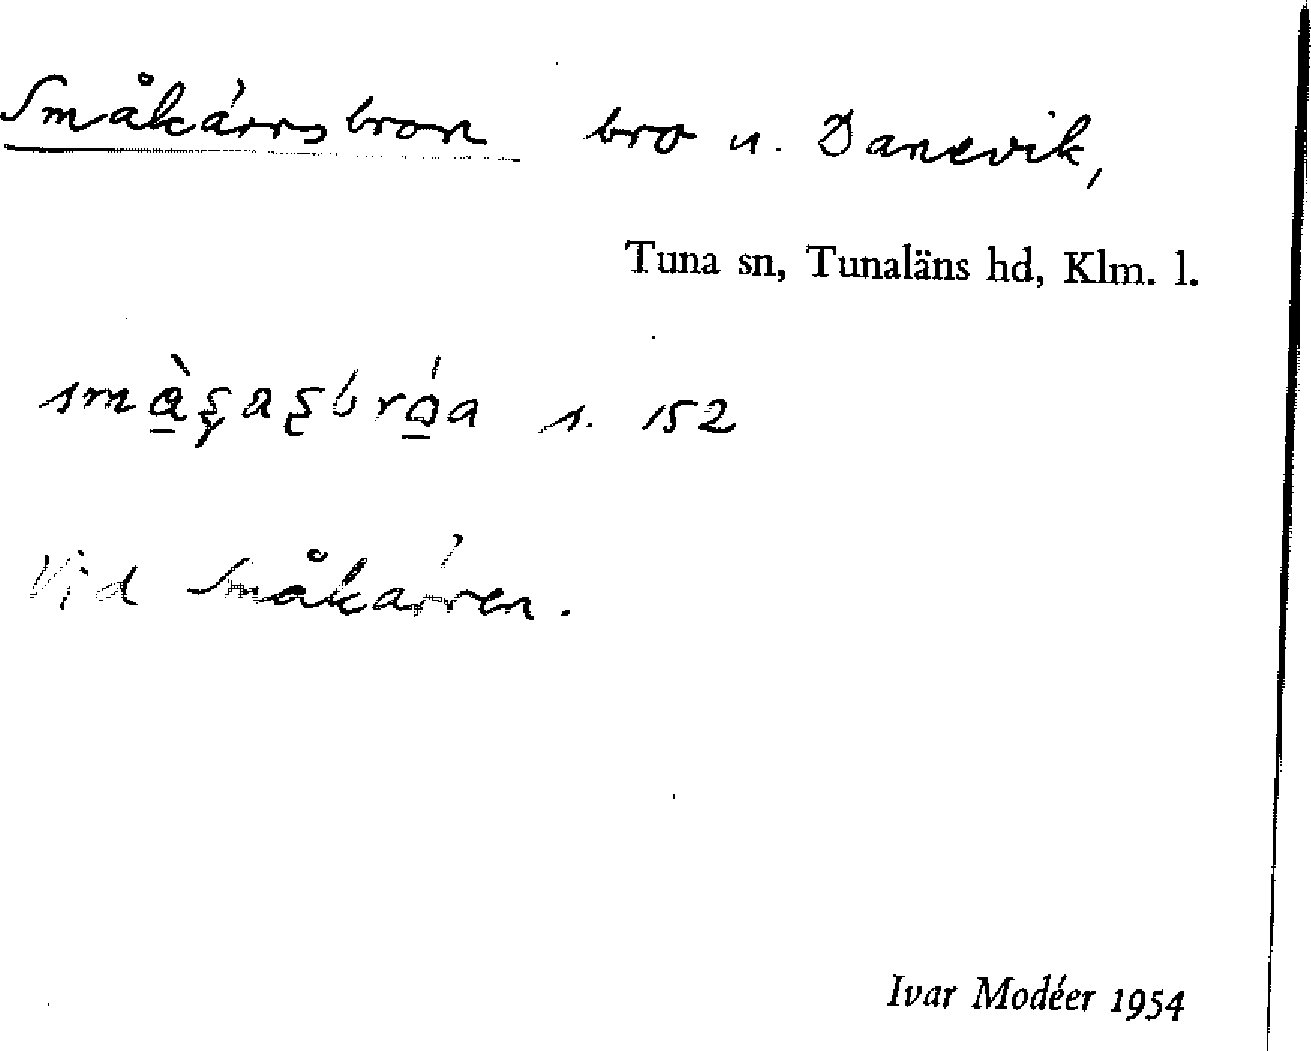 Småkärrsbron bro u. Danevik,
Tuna sn, Tunaläns hd, Klm. l.
s. 152
Vid Småkärren.
Ivar Modéer 1954